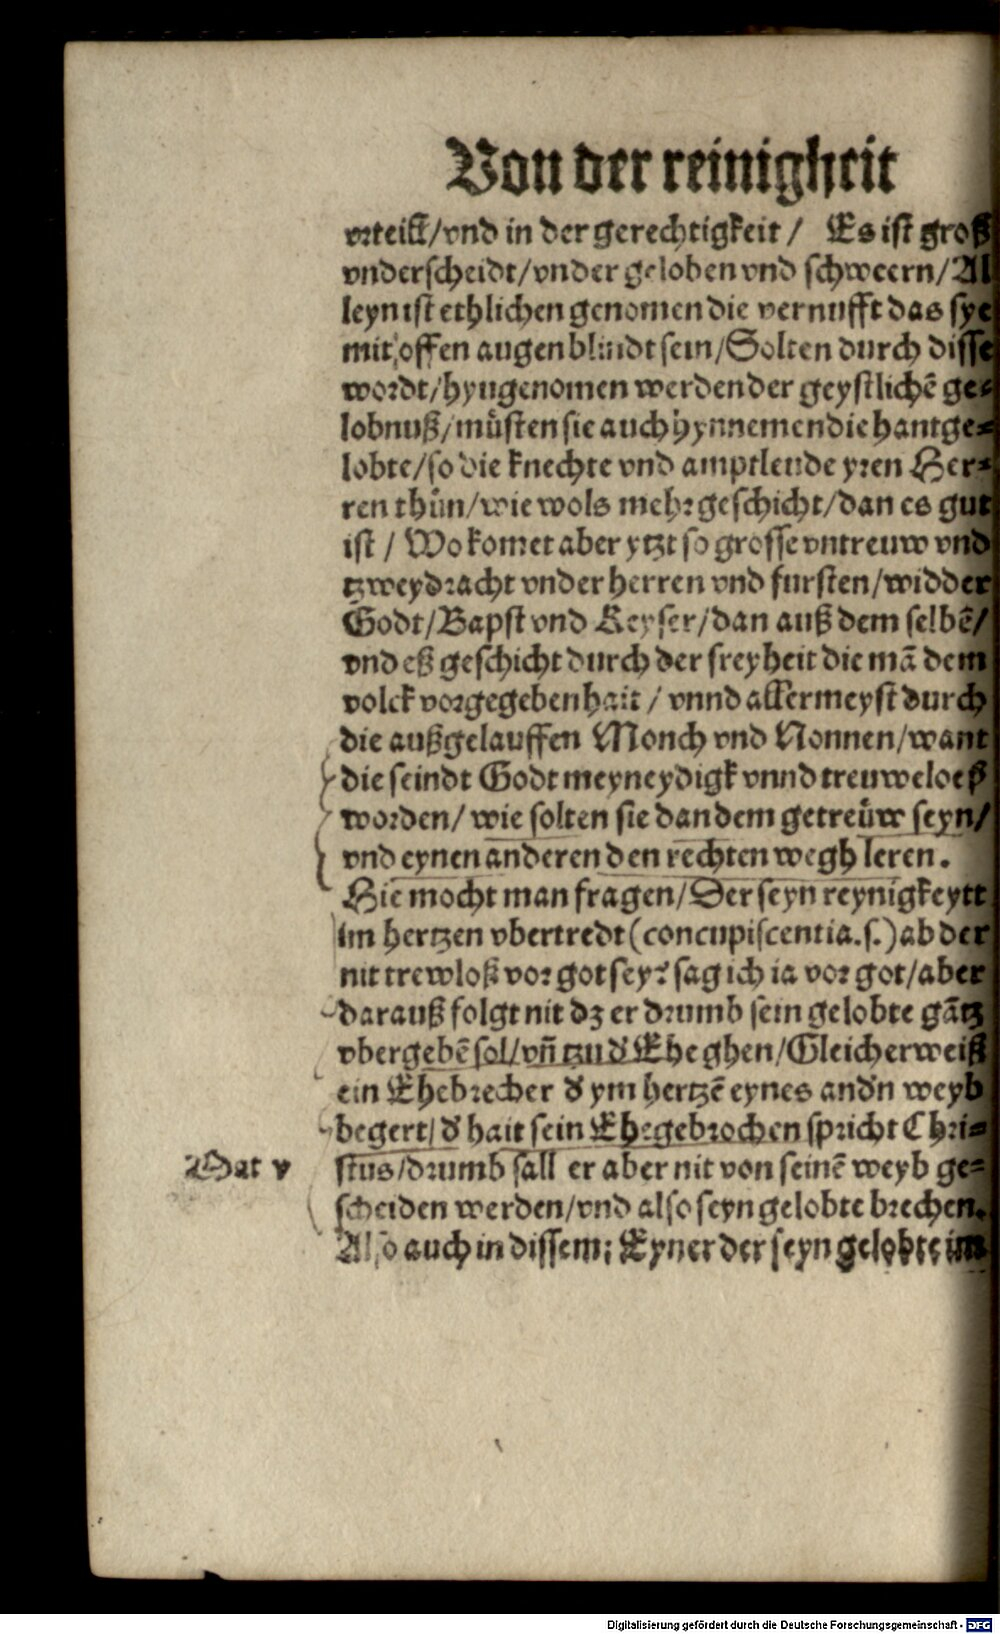 Von der reinigheit
vrteill/vnd in der gerechtigkeit / Es ist groß
vnderscheidt/vnder geloben vnd schweern/Al
leyn ist ethlichen genomen die vernufft das sye
mit offen augen blindt sein/Solten durch disse
wordt/hyngenomen werden der geystlichē ge⸗
lobnuß/müsten sie auch hynnemen die hantge⸗
lobte/so die knechte vnd amptleude yren Her⸗
ren thün/wie wols mehr geschicht/dan es gut
ist / Wo komet aber ytzt so grosse vntreuw vnd
tzweydracht vnder herren vnd fursten/widder
Godt/Bapst vnd Keyser/dan auß dem selbē/
vnd eß geschicht durch der freyheit die mā dem
volck vorgegeben hait / vnnd allermeyst durch
die außgelauffen Monch vnd Nonnen/want
die seindt Godt meyneydigk vnnd treuweloeß
worden/ wie solten sie dan dem getreüw seyn/
vnd eynen anderen den rechten wegh leren.
Hie mocht man fragen/Der seyn reynigkeytt
im hertzen vbertredt (concupiscentia.s.) ab der
nit trewloß vor got sey? sag ich ia vor got/aber
darauß folgt nit dz er drumb sein gelobte gātz
vbergebē sol/vñ tzu d' Ehe ghen/Gleicherweiß
ein Ehebrecher d' ym hertzē eynes and'n weyb
begert/d' hait sein Ehe gebrochen spricht Chri⸗
Mat v stus/drumb sall er aber nit von seinē weyb ge⸗
scheiden werden/vnd also seyn gelobte brechen.
Also auch in dissem; Eyner der seyn gelobte im
Digitalisierung gefördert durch die Deutsche Forschungsgemeinschaft - DFG